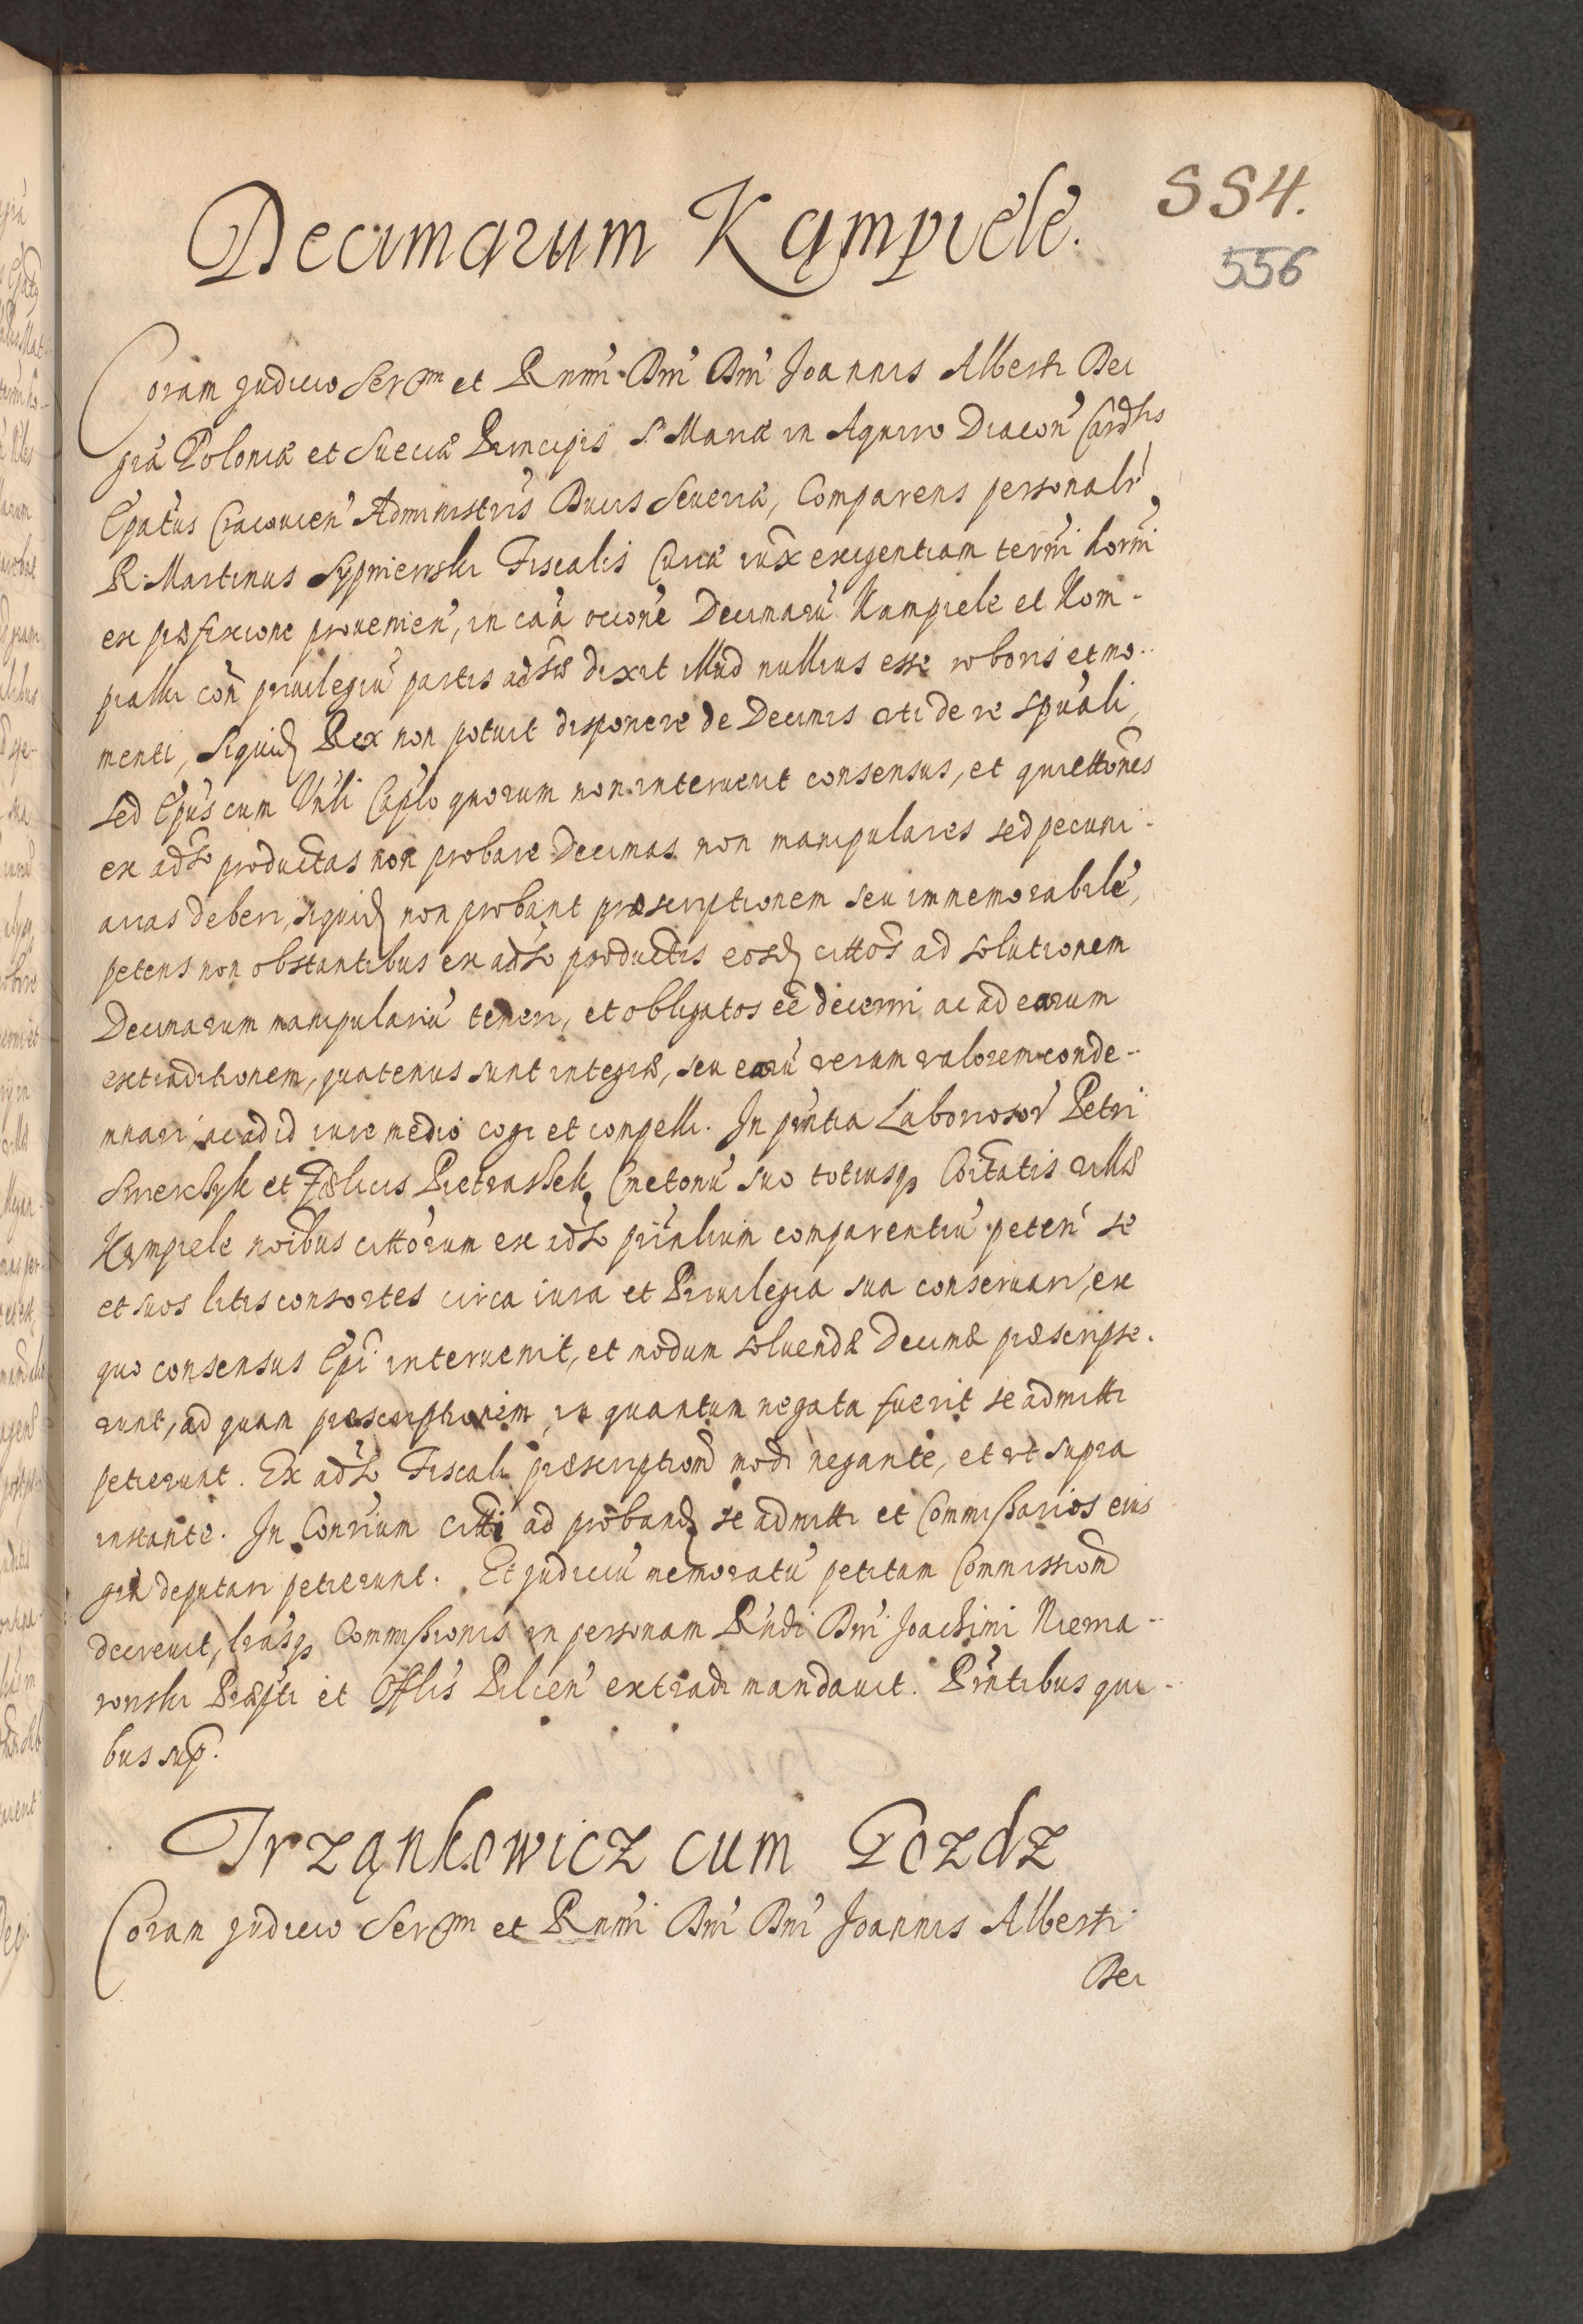 Decimarum Kąmpiele.
554.
556
Coram Judicio Serm̃ et Rnmi Dni Dni Joannis Alberti Dei
gra Poloniæ et Sueciæ Principis S. Mariæ in Aquiro Diacon Cardlis
Epatus Cracouien Administris Ducis Seueriæ, Comparens personalr
R. Martinus Sypniewski Fiscalis Curiæ iux exigentiam termi horni
ex præfixione prouenien, in caa occone Decimaru Kampiele et Kom-
pialki con priuilegiu partis adsæ dixit illud nullius esse roboris et mo-
menti, Siquid Rex non potuit disponere de Decimis uti de re spuali,
sed Epus cum Vnli Caplo quorum non interuenit consensus, et quiettones
ex adso productas non probare Decimas non manipulares sed pecuni-
arias deberi, siquid non probant præscriptionem seu immemorabile,
petens non obstantibus ex adso productis eosd cittos ad solutionem
Decimarum manipulariu teneri, et obligatos ee decerni ac ad earum
extraditionem, quatenus sunt integræ, seu earu uerum ualorem conde-
mnari, ac ad id iure medio cogi et compelli. In pntia Laboriosor Petri
et Fælicis Pietrassek Cmetonu suo totiusq Coitatis uillæ
Kąmpiele noibus cittorum ex adso prinlium comparentiu peten se
et suos litis consortes circa iura et Priuilegia sua conseruari, ex
quo consensus Epi interuenit, et modum soluendæ Decimæ præscripse-
runt, ad quam præscriptionem, in quantum negata fuerit se admitti
petierunt. Ex adso Fiscali præscriptionem modi negante, et ut supra
instante. In Conrium citti ad proband se admitti et Commissarios eius
gra deputari petierunt. Et Judiciu memoratu petitam Commissionem
decreuit, lrasq Commissionis in personam Rndi Dni Joachimi Niema-
ronski Præpti et Offlis Pilcien extradi mandauit. Pñtibus qui-
bus sup.
Trząnkowicz cum Gozdz
Coram Judicio Serm̃ et Rnmi Dni Dni Joannis Alberti
Dei